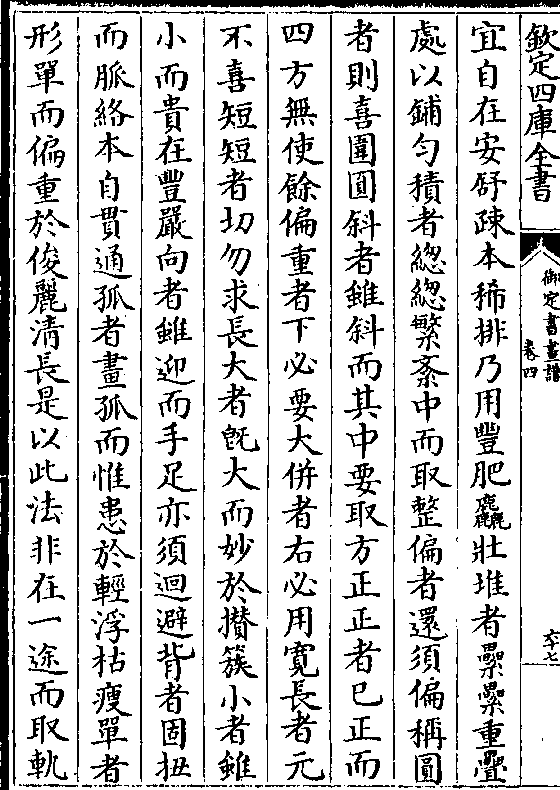 欽定四庫全書
御定書畫譜
卷四
六十七
宜自在安舒疎本稀排乃用豐肥麤壯堆者纍纍重疊
處以鋪勻積者緫緫繁紊中而取整偏者還須偏稱圓
者則喜圍圓斜者雖斜而其中要取方正正者已正而
四方無使餘偏重者下必要大併者右必用寬長者元
不喜短短者切勿求長大者旣大而妙於攢簇小者雖
小而貴在豐嚴向者雖迎而手足亦須迴避背者固扭
而脈絡本自貫通孤者畫孤而惟患於輕浮枯瘦單者
形單而偏重於俊麗清長是以此法非在一途而取軌